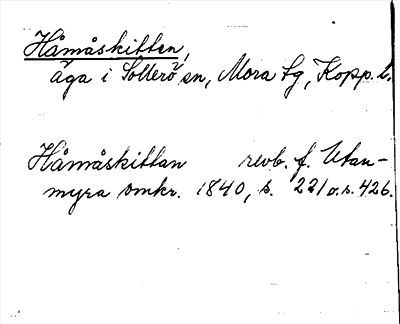 Håmåskitten,
äga i Sollerö sn, Mora tg, Kopp. l.
Håmåskittan revb. f. Utan-
myra omkr. 1840, s. 221 o. s. 426.